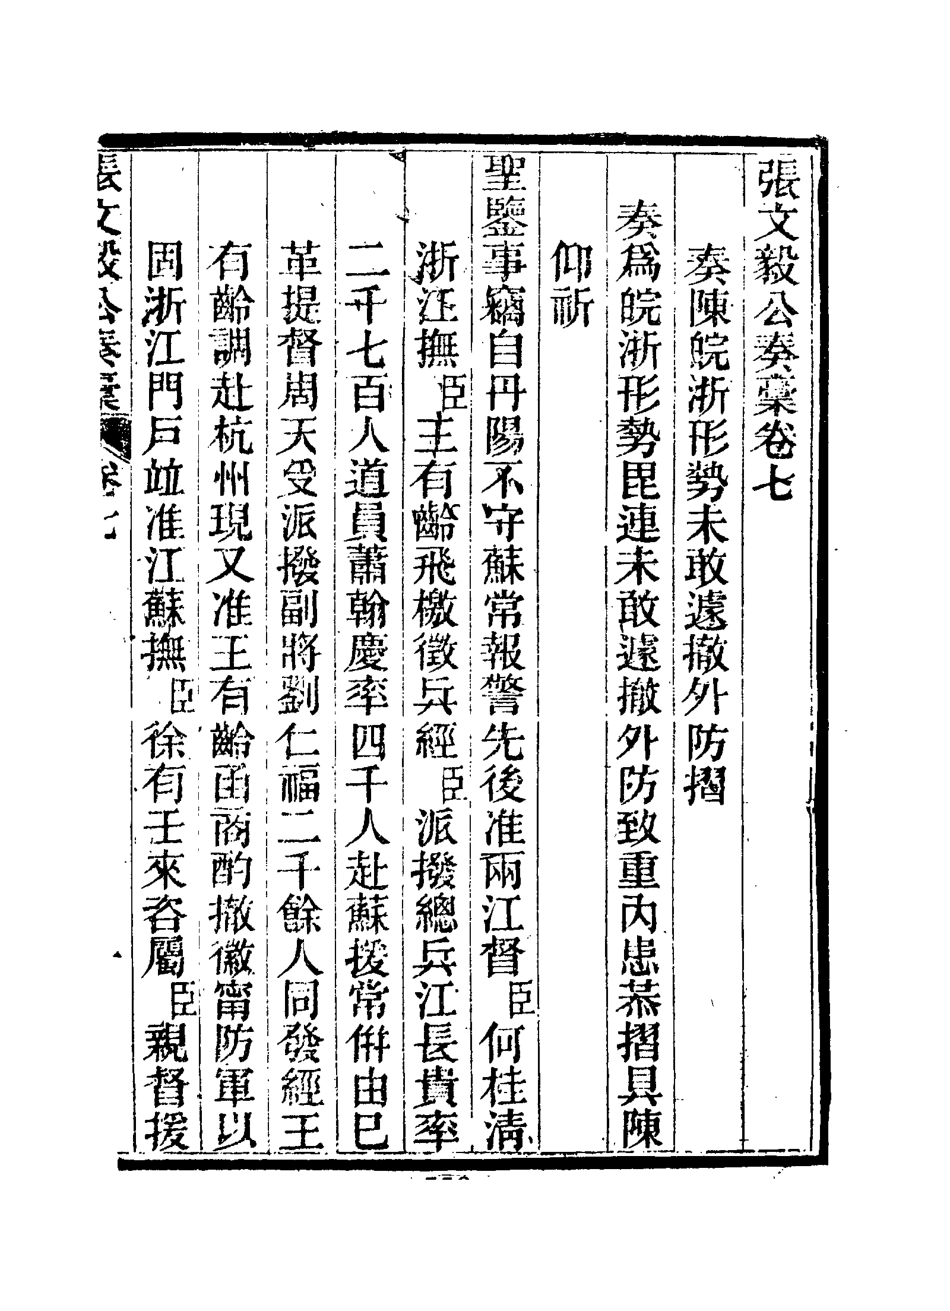 張文毅公奏稾卷七
奏陳皖浙形勢未敢遽撤外防摺
奏爲皖浙形勢毘連未敢遽撤外防致重內患恭摺具陳
仰祈
聖鑒事竊自丹陽不守蘇常報警先後准兩江督臣何桂淸
浙江撫臣王有齡飛檄徵兵經臣派撥總兵江長貴率
二千七百人道員蕭翰慶率四千人赴蘇援常倂由已
革提督周天受派撥副將劉仁福二千餘人同發經王
有齡調赴杭州現又准王有齡函商酌撤徽甯防軍以
固浙江門戶竝准江蘇撫臣徐有壬來咨屬臣親督援
張文毅公奏稾 卷七